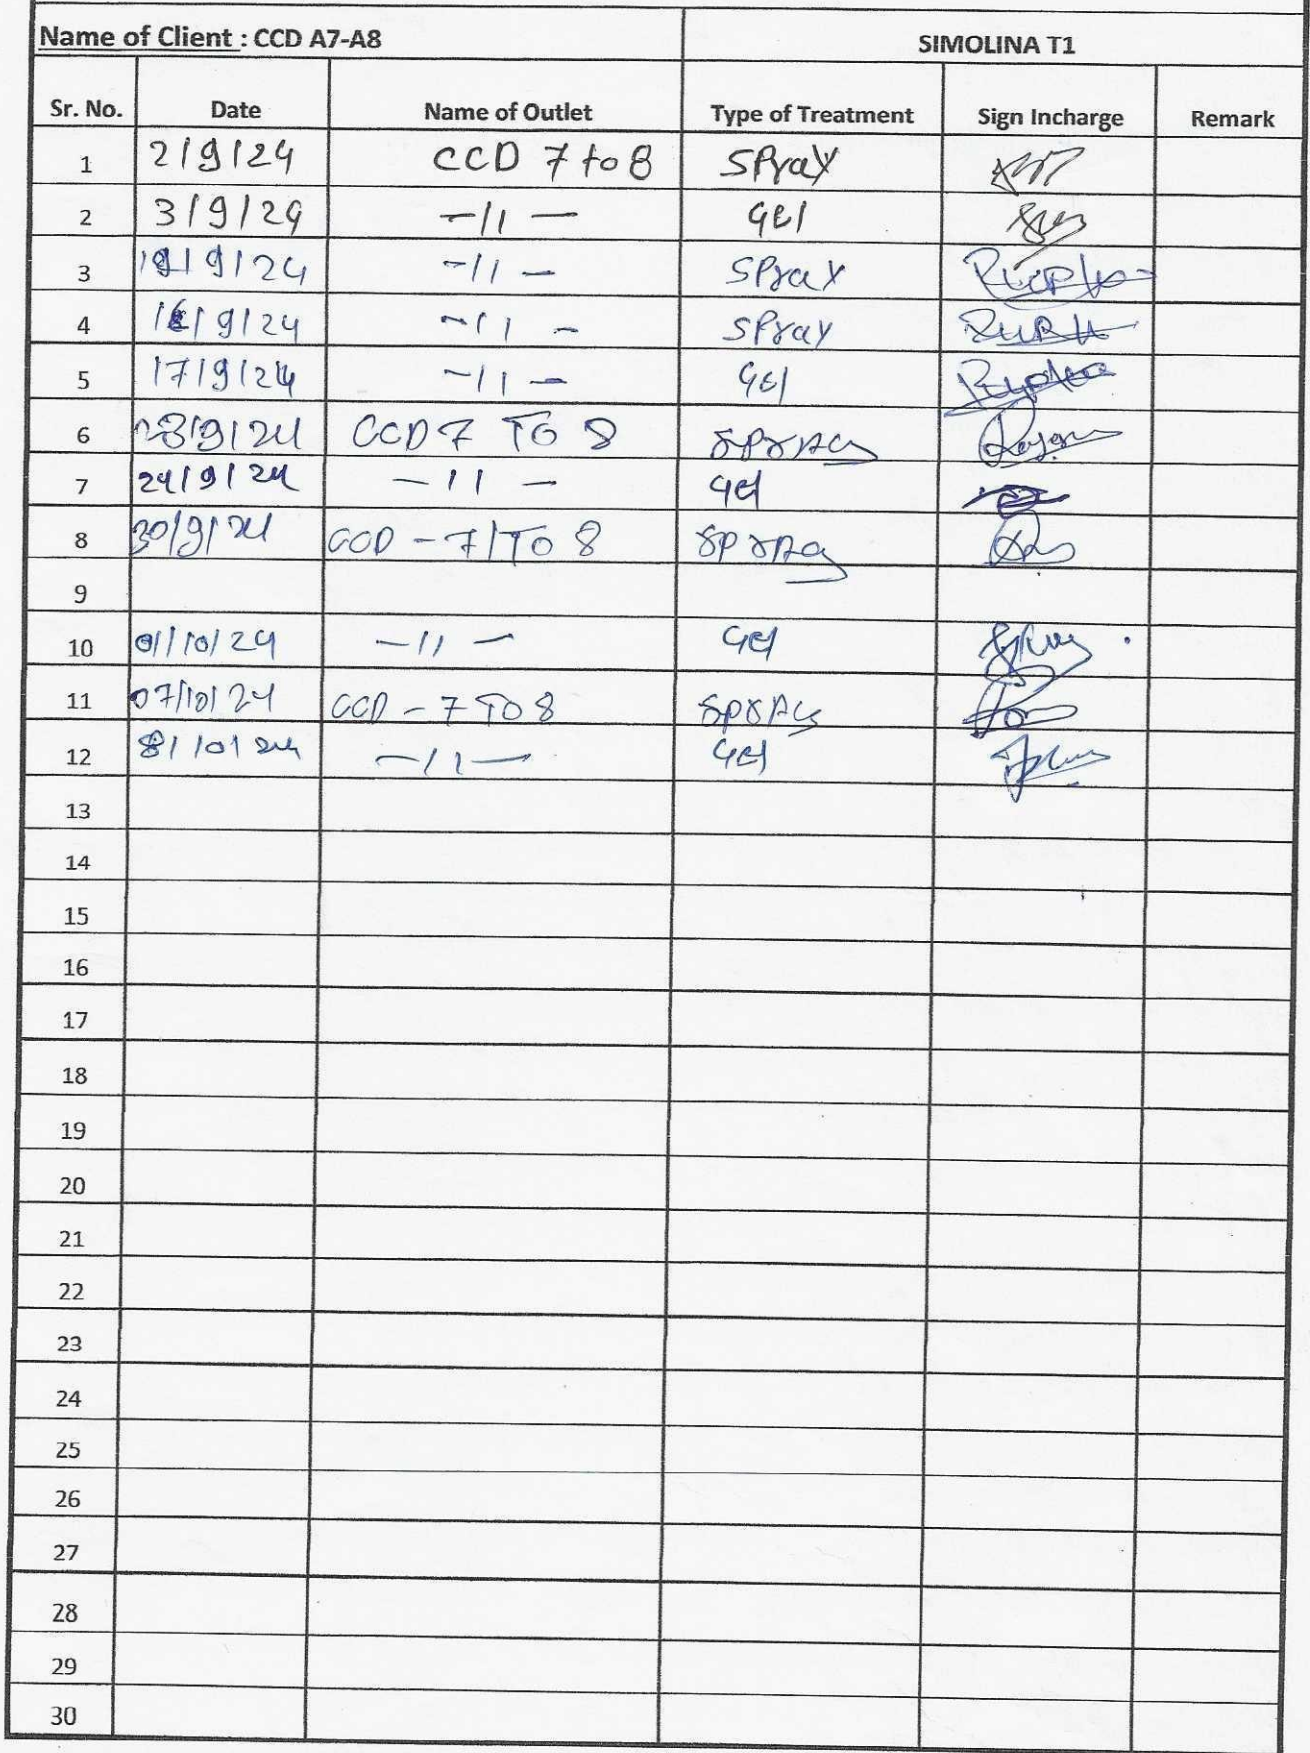 Name of Client : CCD A7-A8 SIMOLINA T1
Sr. No. Date Name of Outlet Type of Treatment Sign Incharge Remark
1 2/9/24 CCD 7 to 8 SPraY
2 3/9/24 -11- GEl
3 9/24 -11- SPraX
4 9/24 -11- SPray
5 17/9/24 -11- GEl
6 23/9/24 CCD 7 TO 8 SPrAy
7 24/9/24 -11- GEl
8 30/9/24 CCD - 7/TO 8 SPrAy
9
10 01/10/24 -11- GEl
11 07/10/24 CCD - 7 TO 8 SPrAy
12 8/10/24 -11- GEl
13
14
15
16
17
18
19
20
21
22
23
24
25
26
27
28
29
30